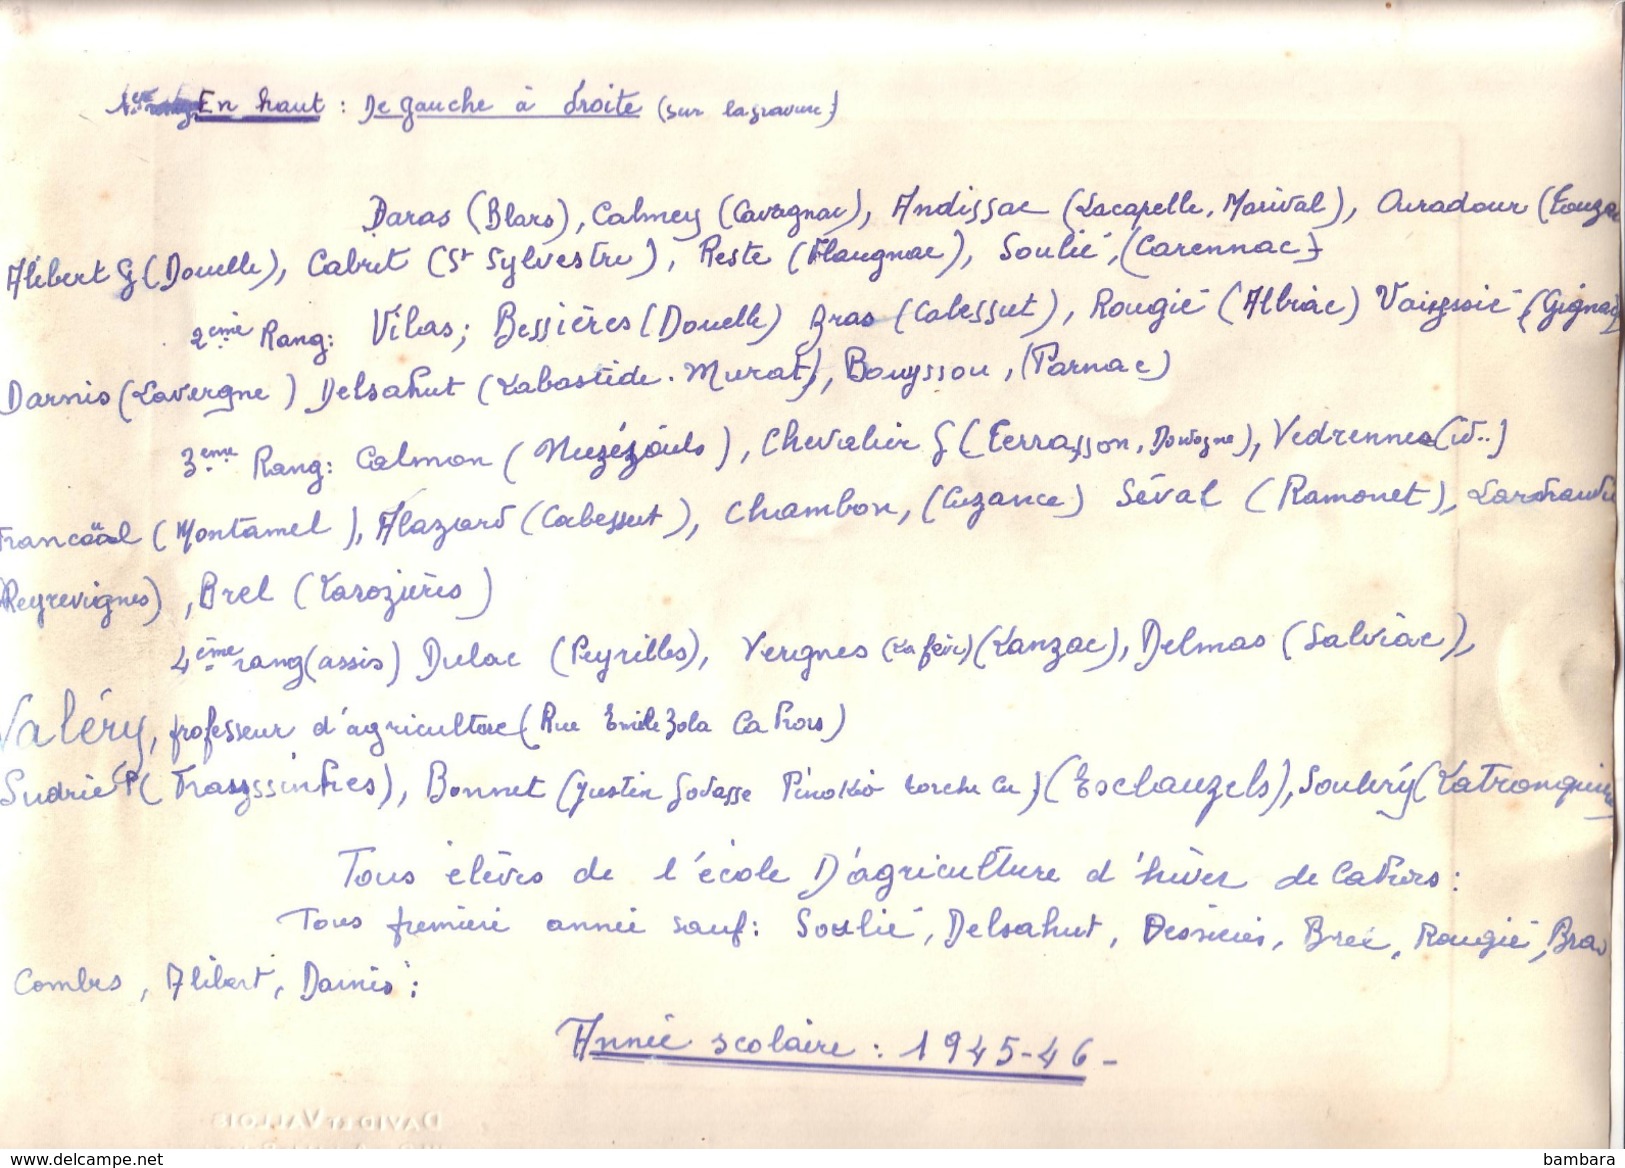 En haut : De gauche à droite (sur la gravure)
Daras (Blars), Calmey (Cavagnac), Andissac (Lacapelle. Marival), Ouradour (Touzac
Alibert G (Douelle), Cabrit (St Sylvestre), Reste (Flaugnac), Soulié, (Carennac)
2ème Rang: Vilas; Bessières (Douelle) Bras (Cabessut), Rougié (Albiac) Vayssié (Gignac)
Darnis (Lavergne) Delsahut (Labastide. Murat), Bouyssou, (Parnac)
3ème Rang: Calmon (Nuzéjouls), Chevalier G (Terrasson, Dordogne), Vedrennes (id..)
(Montamel), Alazard (Cabessut), Chambon, (Cuzance) Séval (Ramonet),
(Reyrevignes), Brel (Larozières)
4ème rang (assis) Dulac (Peyrilles), Vergnes (Lanzac), Delmas (Salviac),
Valéry, professeur d'agriculture (Rue Emile Zola Cahors)
Sudrié P (Frayssinhes), Bonnet (Justin Godasse Pinokio) (Esclauzels), Souléry (Latronquière)
Tous élèves de l'école D'agriculture d'hiver de Cahors :
Tous première année sauf: Soulié, Delsahut, Brel, Rougié, Bras
Combes, Alibert, Darnis :
Année scolaire : 1945-46 -
DAVID ET VALLOIS
www.delcampe.net
bambara